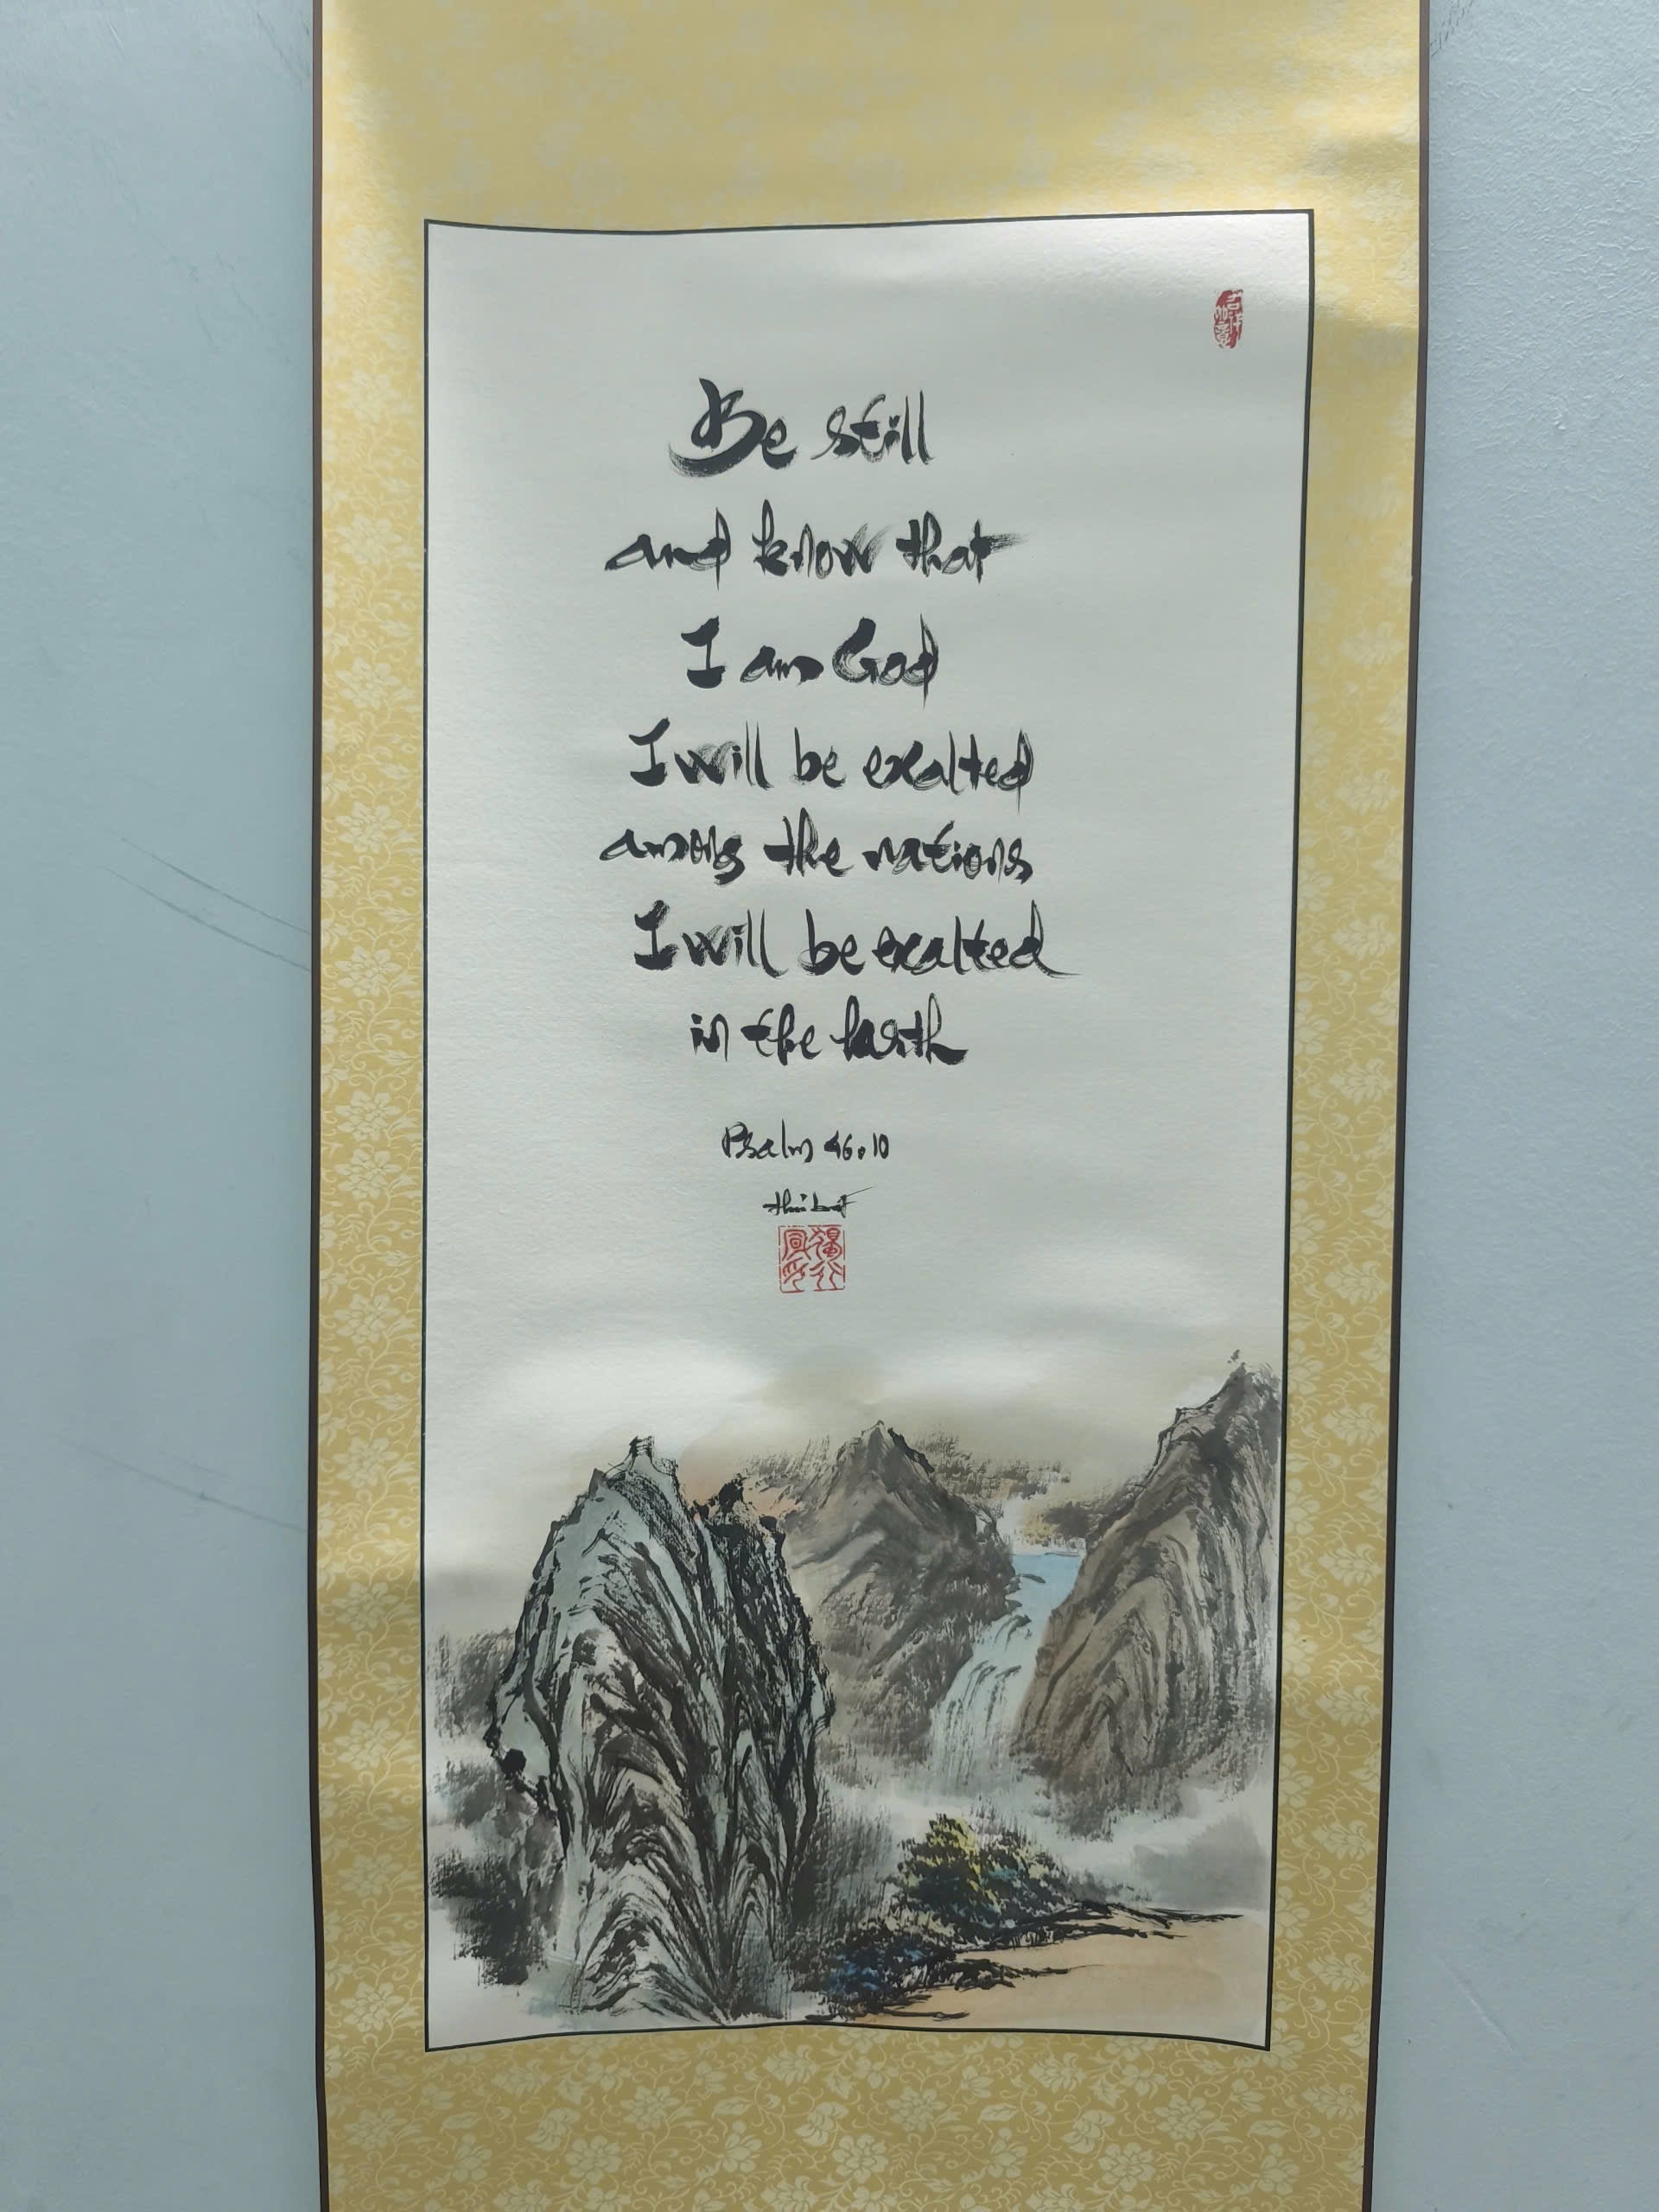 吉祥如意
Be still
and know that
I am God
I will be exalted
among the nations
I will be exalted
in the Earth
Psalm 46:10